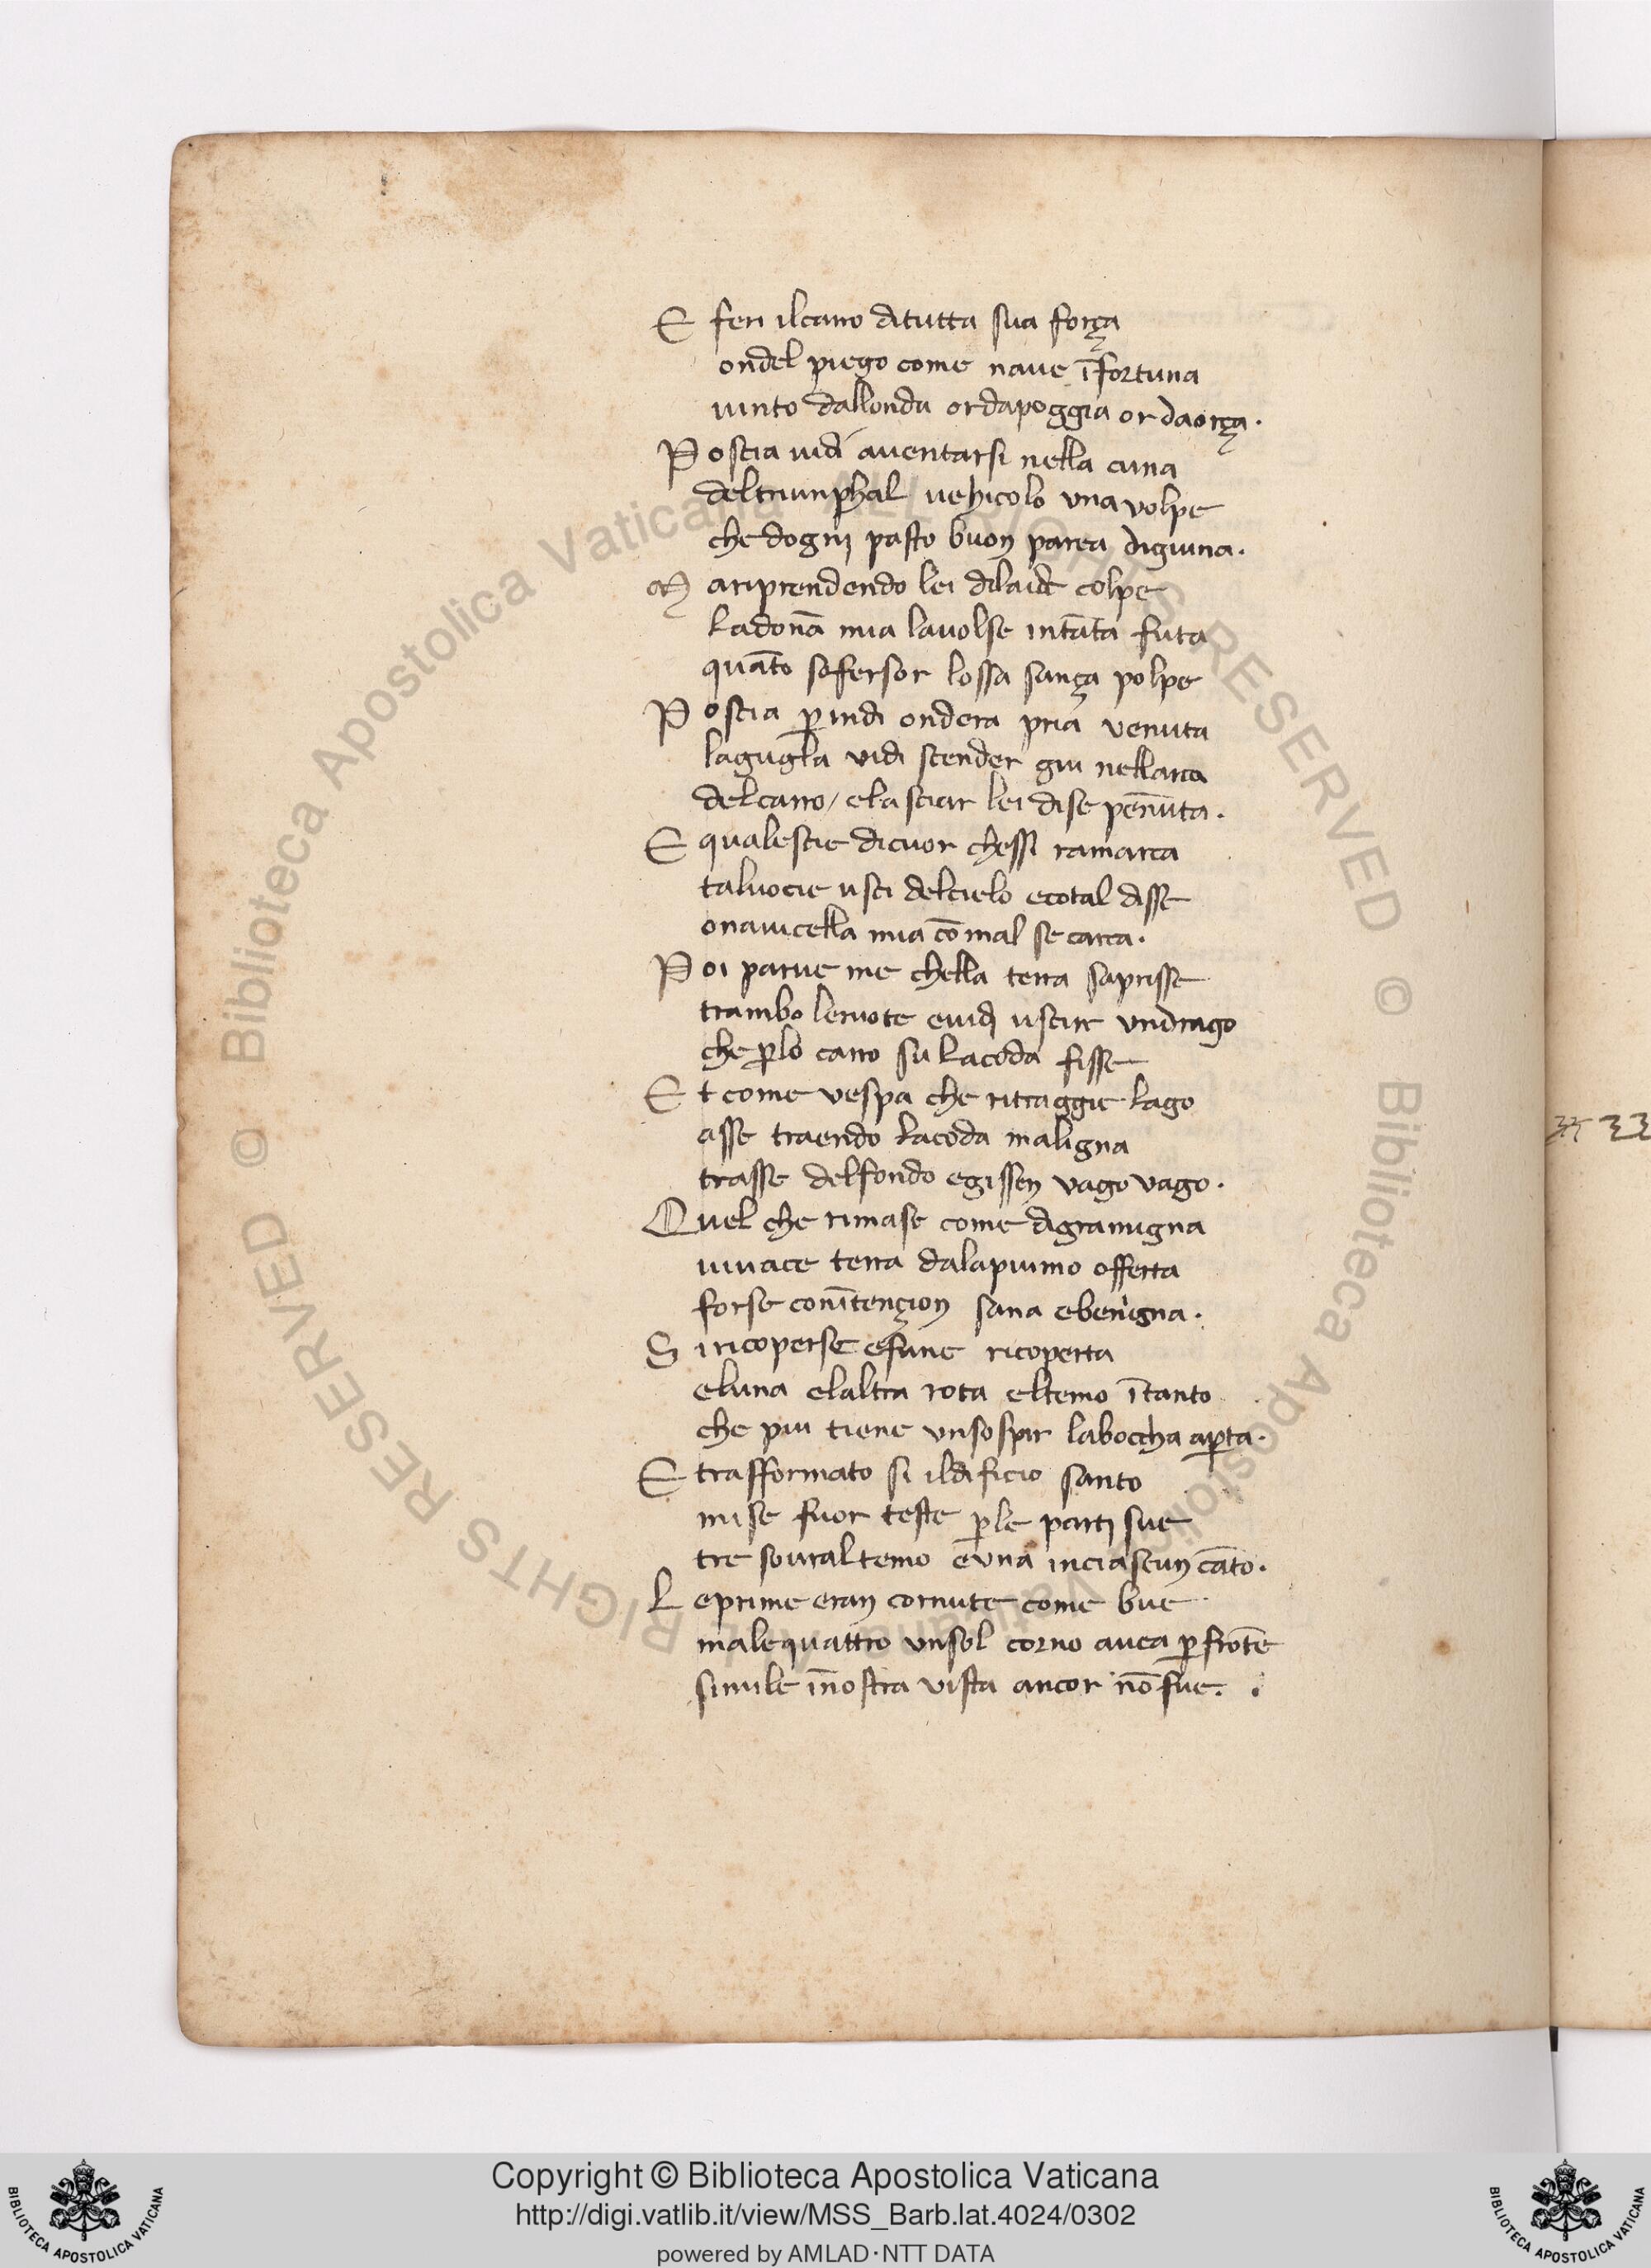 E feri ilcarro ditutta sua força
ondel piego come naue ĩfortuna
uinto dallonda ordapoggia or daorça.
Poscia uidi auentarsi nella cuna
deltriumphal uehicolo una uolpe
che dogni pasto buon parea digiuna.
Ma riprendendo lei dilaide colpe
ladonã mia lauolse intãta futa
quãto sofersor lossa sança polpe
Poscia ꝑindi ondera pria venuta
lagugla vidi scender giu nellarca
delcarro / elasciar lei dise pẽnuta.
E qualescie dicuor chessi ramarca
taluocie usci delcielo ecotal disse
onauicella mia cõ mal se carca.
Poi parue me chella terra saprisse
trambo leruote euidi uscir vndrago
che ꝑlo carro su lacoda fisse
Et come vespa che ritraggie lago
asse traendo lacoda maligna
trasse delfondo egissen vago vago.
Quel che rimase come digramigna
uiuace terra dalapiumo offerta
forse conĩtençion sana ebenigna.
Si ricoperse efune ricoperta
eluna elaltra rota eltemo ĩtanto
che piu tiene vnsospir laboccha aꝑta.
E trasformato si ildificio santo
mise fuor teste ꝑle parti sue
tre soural temo e vna inciascun cãto.
Leprime eran cornute come bue
malequattro vnsol corno auea ꝑfrõte
simile ĩnostra vista ancor nõ fue.
33
© Biblioteca Apostolica Vaticana ALL RIGHTS RESERVED © Biblioteca Apostolica Vaticana ALL RIGHTS RESERVED
Copyright © Biblioteca Apostolica Vaticana
http://digi.vatlib.it/view/MSS_Barb.lat.4024/0302
powered by AMLAD·NTT DATA
BIBLIOTECA APOSTOLICA VATICANA
BIBLIOTECA APOSTOLICA VATICANA